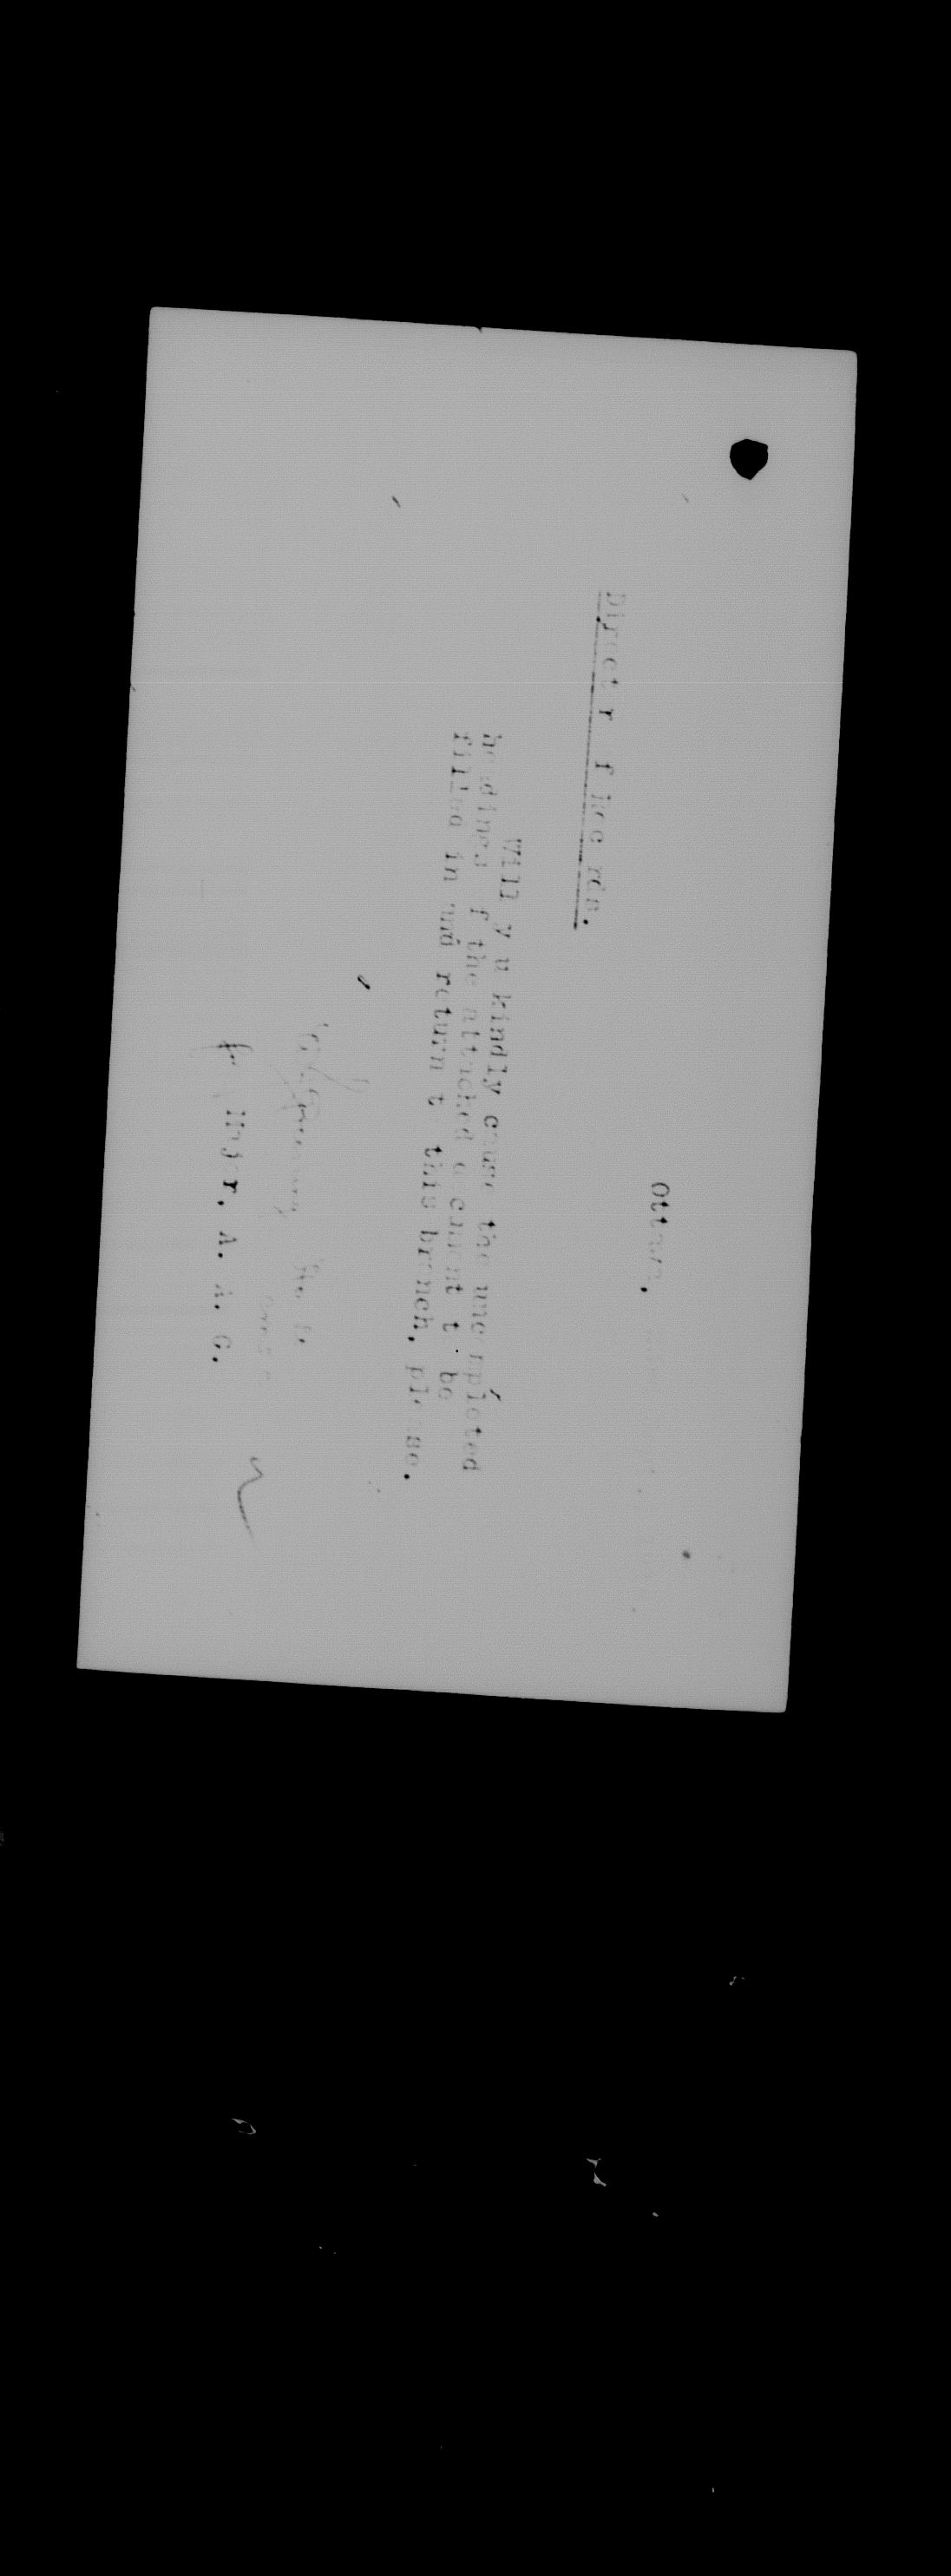 Ottawa,
Director of Records.
Will you kindly cause the uncompleted
headings of the attached document to be
filled in and return to this branch, please.
for Major, A. A. G.